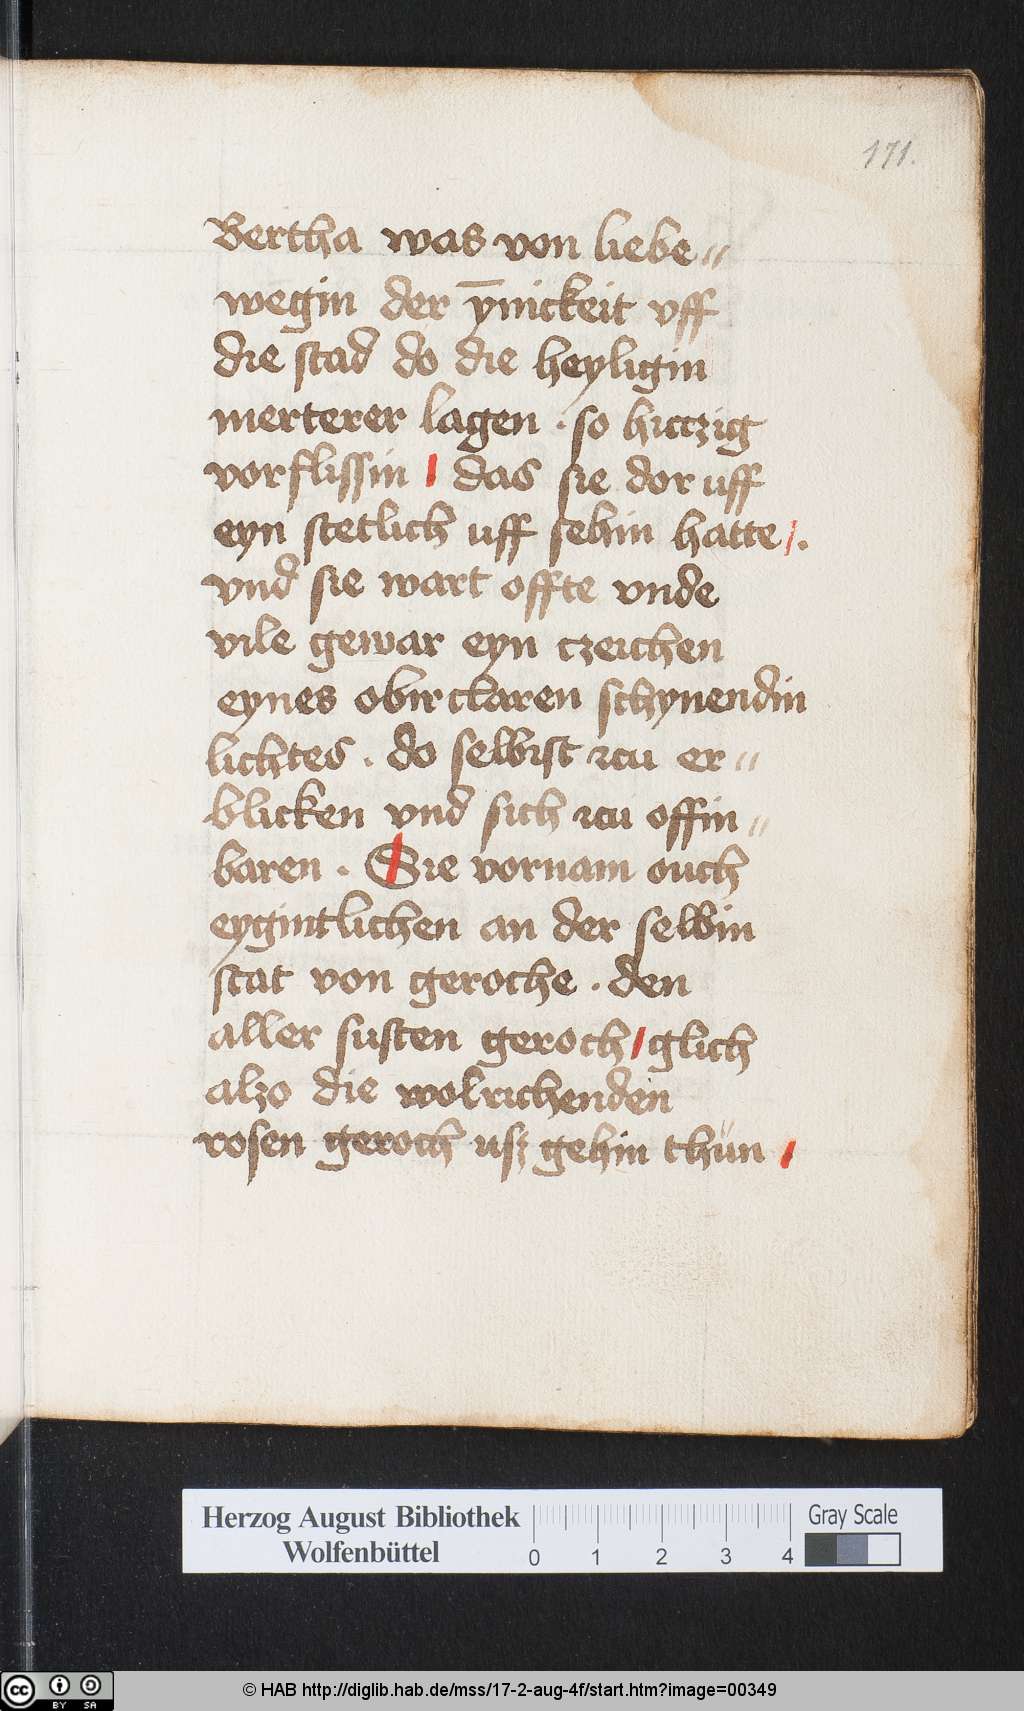 171.
Bertha was von liebe〃
wegin der ȳnickeit vff
die stad do die heyligin
merterer lagen . so hittzig
vorflissin | das sie dor uff
eyn stetlich uff sehin hatte |.
vnd sie wart offte vnde
vile gewar eyn tzeichen
eynes obirclaren schynendin
lichtes . do selbist zcu er〃
blicken vnd sich zcu offin〃
baren . Sie vornam ouch
eygintlichen an der selbin
stat von geroche . den
aller susten geroch | glich
alzo die wolrichenden
rosen geroch usz gehin thün |
Herzog August Bibliothek
Wolfenbüttel
0 1 2 3 4
Gray Scale
cc BY SA
© HAB http://diglib.hab.de/mss/17-2-aug-4f/start.htm?image=00349